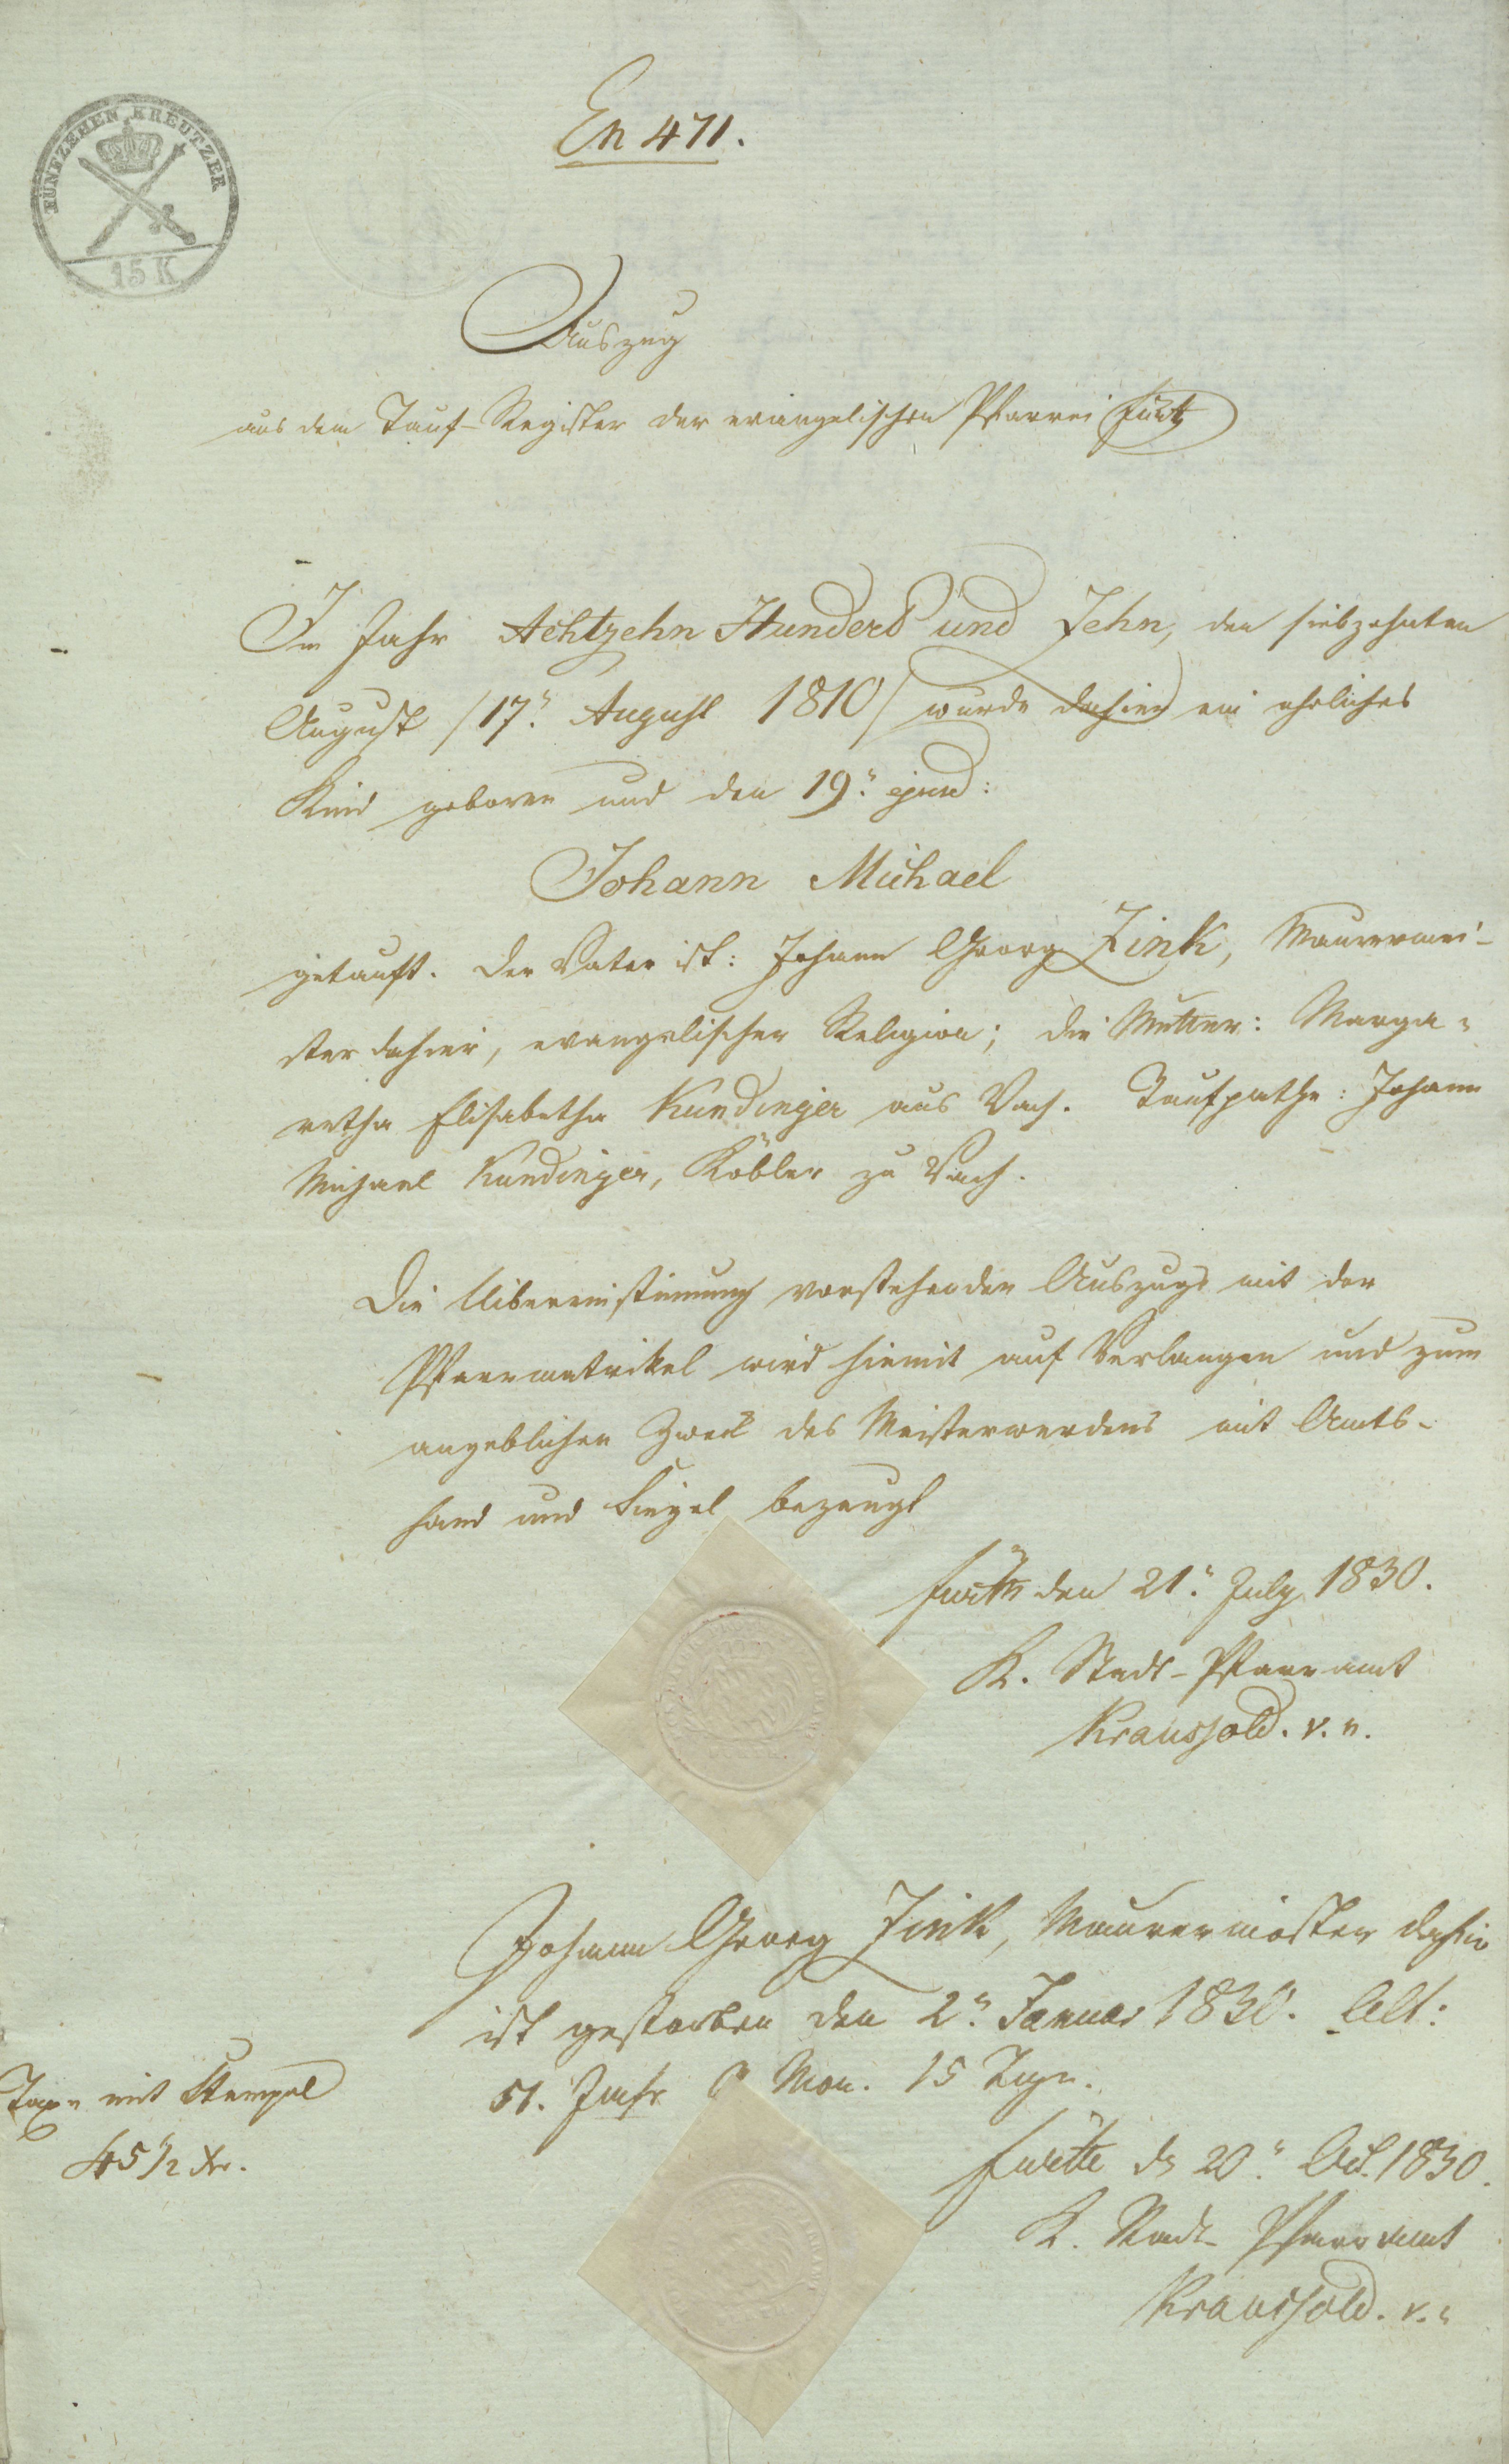 FÜNFZEHEN KREUTZER
15 K
En 471.
Auszug
aus dem Tauf-Register der evangelischen Pfarrei Fürth
Im Jahr Achtzehn Hundert und Zehn, den siebzehnten
August /17" August 1810/ wurde dahier ein ehrliches
Kind geboren und den 19" ejusd:
Johann Michael
getauft. Der Vater ist: Johann Georg Zink, Maurermei-
ster dahier, evangelischer Religion; die Mutter: Marga-
retha Elisabetha Kundinger aus Vach. Taufpathe: Johann
Michael Kundinger, Köbler zu Vach.
Die Uibereinstimmung vorstehenden Auszugs mit der
Pfarrmatrikel wird hiemit auf Verlangen und zum
angeblichen Zweck des Meisterwerdens mit Amts-
hand und Siegel bezeugt
Fürth den 21" July 1830.
K. Stadt-Pfarramt
Kraussold. v. n.
Johann Georg Zink, Maurermeister dahier
ist gestorben den 2" Januar 1830. Alt:
51. Jahr Mon. 15 Tage.
Taxe mit Stempel
45 1/2 Xr.
Fürth d 20" Oct. 1830.
K. Stadt-Pfarramt
Kraussold. v.